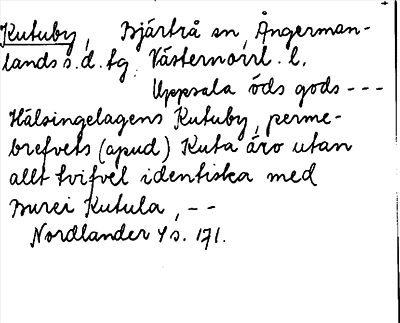 Kutuby, Bjärtrå sn, Ångerman-
lands s.d. fg. Västernorrl. l.
Uppsala öds gods ---
Hälsingelagens Kutuby, perme-
brefvets (apud) Kuta äro utan
allt tvifvel identiska med
Burei Kutula, --
Nordlander 4 s. 171.